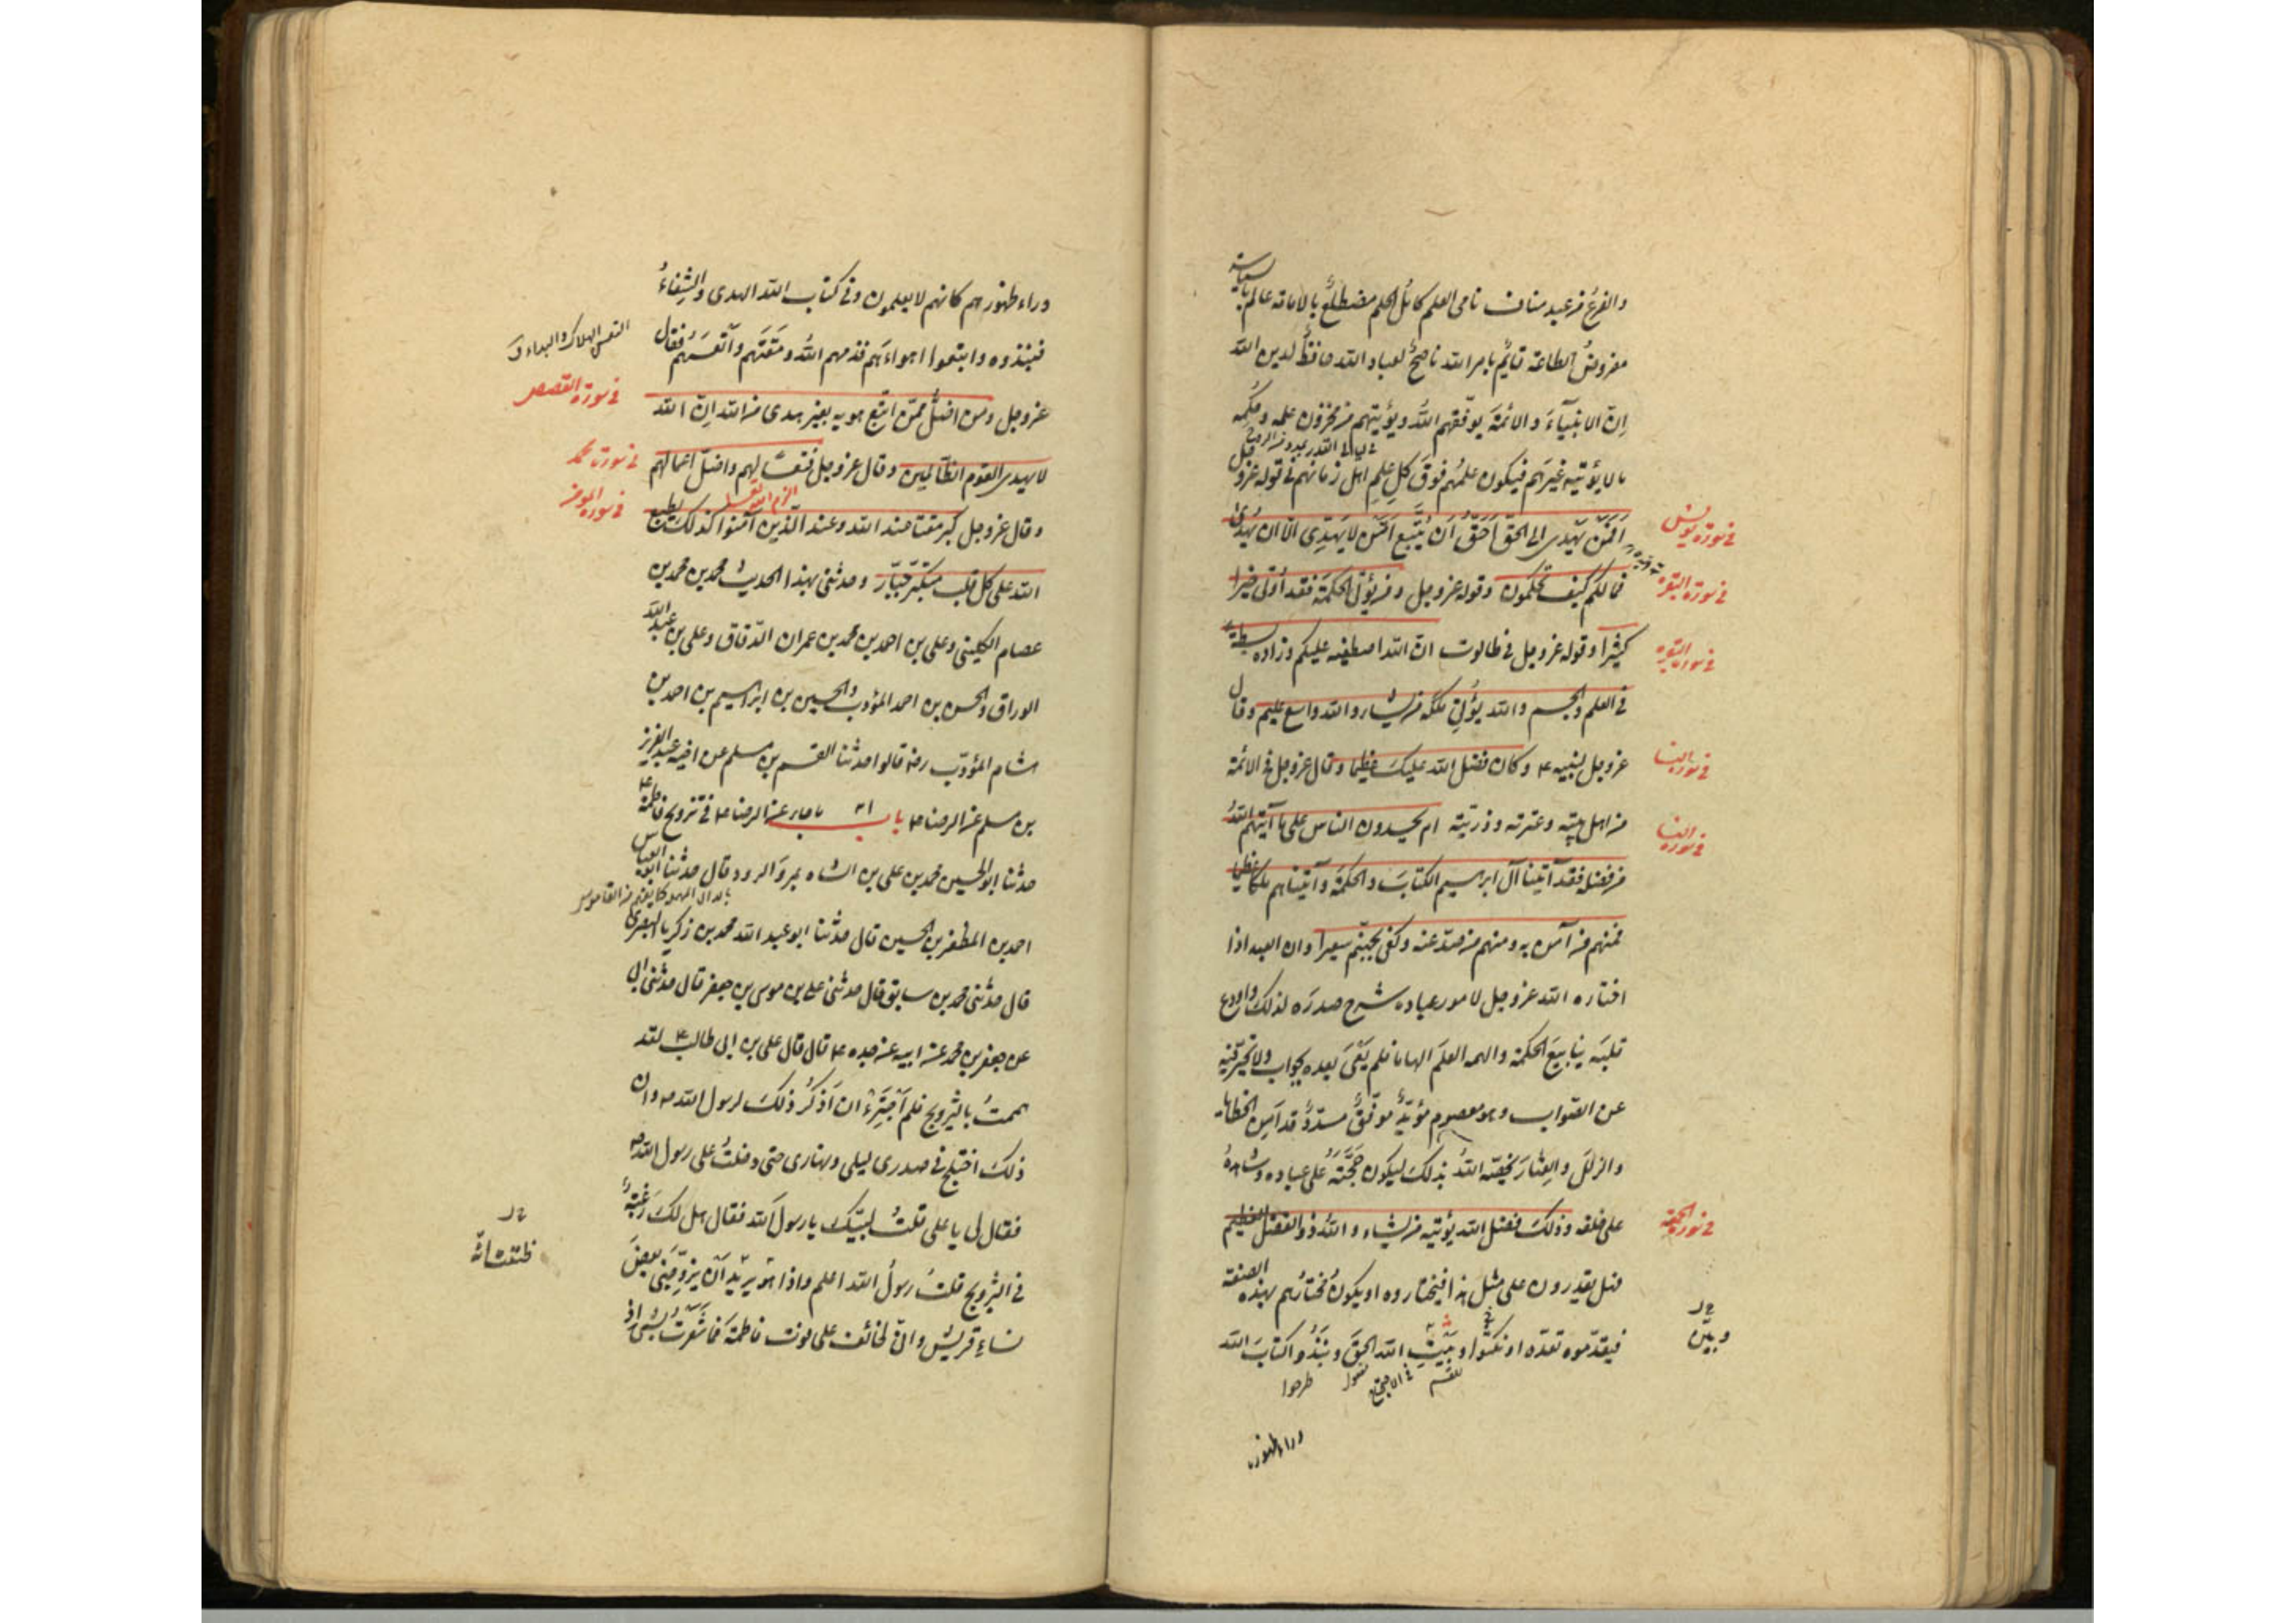 والفرع من عبد مناف نامى العلم كامل الحلم مضطلع بالامانة عالم بالسياسة
مفروض الطاعة قائم بامر الله ناصح لعباد الله حافظ لدين الله
اِنّ الانبيآءَ والائمةَ يوفّقهم اللهُ ويؤتيهم من مخزون علمه وحِكَمِه
مالا يؤتيه غيرَهم فيكون علمُهم فوقَ كلِ علمِ اهل زمانهم فى قوله عزوجل
اَفَمَن يَهْدى الى الحقّ اَحَقُّ اَن يُتَّبع اَمَّن لا يَهِدِّى الّا ان يُهدى
فى سورة يونس
فمالكم كيف تحكمون وقوله عزوجل ومن يؤتَ الحكمة فقد أوتى خيرا
فى سورة البقره
كثيرًا وقوله عزوجل فى طالوت ان الله اصطفيه عليكم وزاده بسطة
فى سورة البقره
فى العلم والجسم والله يؤتى ملكه من يشاء والله واسع عليم وقال
عزوجل لنبيه ع وكان فضل الله عليك عظيما وقال عزوجل فى الائمة
فى سورة النسا
من اهل بيته وعترته وذريته ام يحسدون الناس على ما آتيهم اللهُ
فى سورة النسا
من فضله فقد آتينا آل ابرهيم الكتابَ والحكمة وآتيناهم ملكا عظيما
فمنهم من آمن به ومنهم من صدّ عنه وكفى بجهنّم سعيرا وان العبد اذا
اختاره الله عزوجل لامور عباده شرح صدرَه لذلك واودع
قلبَه ينابيعَ الحكمة والهمه العلمَ الهاما فلم يَعْىَ بعده بجواب ولا تحيّر فيه
عن الصّواب وهو معصوم مؤيّدٌ موفّقٌ مسدّدٌ قد اَمِن الخطايا
والزللَ والعِثارَ يخصّه اللهُ بذلك ليكون حجّتَه على عباده وشاهدَه
على خلقه وذلك فضل الله يؤتيه من يشاء واللهُ ذو الفضل العظيم
فى سورة الجمعة
فهل يقدرون على مثل هذا فيختاروه او يكونُ مختارُهم بهذه الصفة
فيقدّموه تعدّوا وبَيْتِ الله الحقَّ ونَبَذُوا كتابَ الله
طرحوا
وراء ظهورهم
وراء ظهورهم كانهم لا يعلمون وفى كتاب الله الهدى والشِفاءُ
فنبذوه واتبعوا اهواءَهم فذمهم اللهُ ومَقَتَهم وأتعسَهُم فقال
عزوجل ومن اضلّ ممّن اتبع هويه بغير هدى من الله اِنّ الله
فى سورة القصص
لا يهدى القوم الظّالمين وقال عزوجل فتعسًا لهم واضلّ اعمالهم
فى سورة محمد
وقال عزوجل كبر مقتا عند الله وعند الّذين آمنوا كذلك يطبع
فى سورة المؤمن
الله على كل قلب متكبّر جبّار وحدثنى بهذا الحديث محمد بن محمد بن
عصام الكلينى وعلى بن احمد بن محمد بن عمران الدّقاق وعلى بن عبد الله
الوراق والحسن بن احمد المؤدب والحسين بن ابراهيم بن احمد بن
هشام المؤدّب رضه قالوا حدثنا القسم بن مسلم عن اخيه عبد العزيز
بن مسلم عن الرضا ع باب ٢١ ما جاء عن الرضا ع فى تزويج فاطمة ع
حدثنا ابو الحسين محمد بن على بن الشاه بمروَالرود قال حدثنا ابو العباس
احمد بن المظفر بن الحسين قال حدثنا ابو عبد الله محمد بن زكريا البصرى
قال حدّثنى محمد بن سابق قال حدثنى على بن موسى بن جعفر قال حدثنى ابى
عن جعفر بن محمد عن ابيه عن جده ع قال قال على بن ابى طالب ع لقد
هممتُ بالتزويج فلم اَجْتَرِءْ ان اَذكُرَ ذلكَ لرسول الله ص وان
ذلكَ اختلج فى صدرى ليلى ونهارى حتى دخلتُ على رسول الله ص
فقال لى يا على قلتُ لبّيك يا رسولَ الله فقال هل لكَ رَغبةٌ
فى التزويج قلتُ رسولُ الله اعلم واذا هو يريد اَن يزوّجنى بعضَ
نساءِ قريش وانّى لخائف على فوت فاطمةَ فما شَعَرتُ بشىءٍ اذ